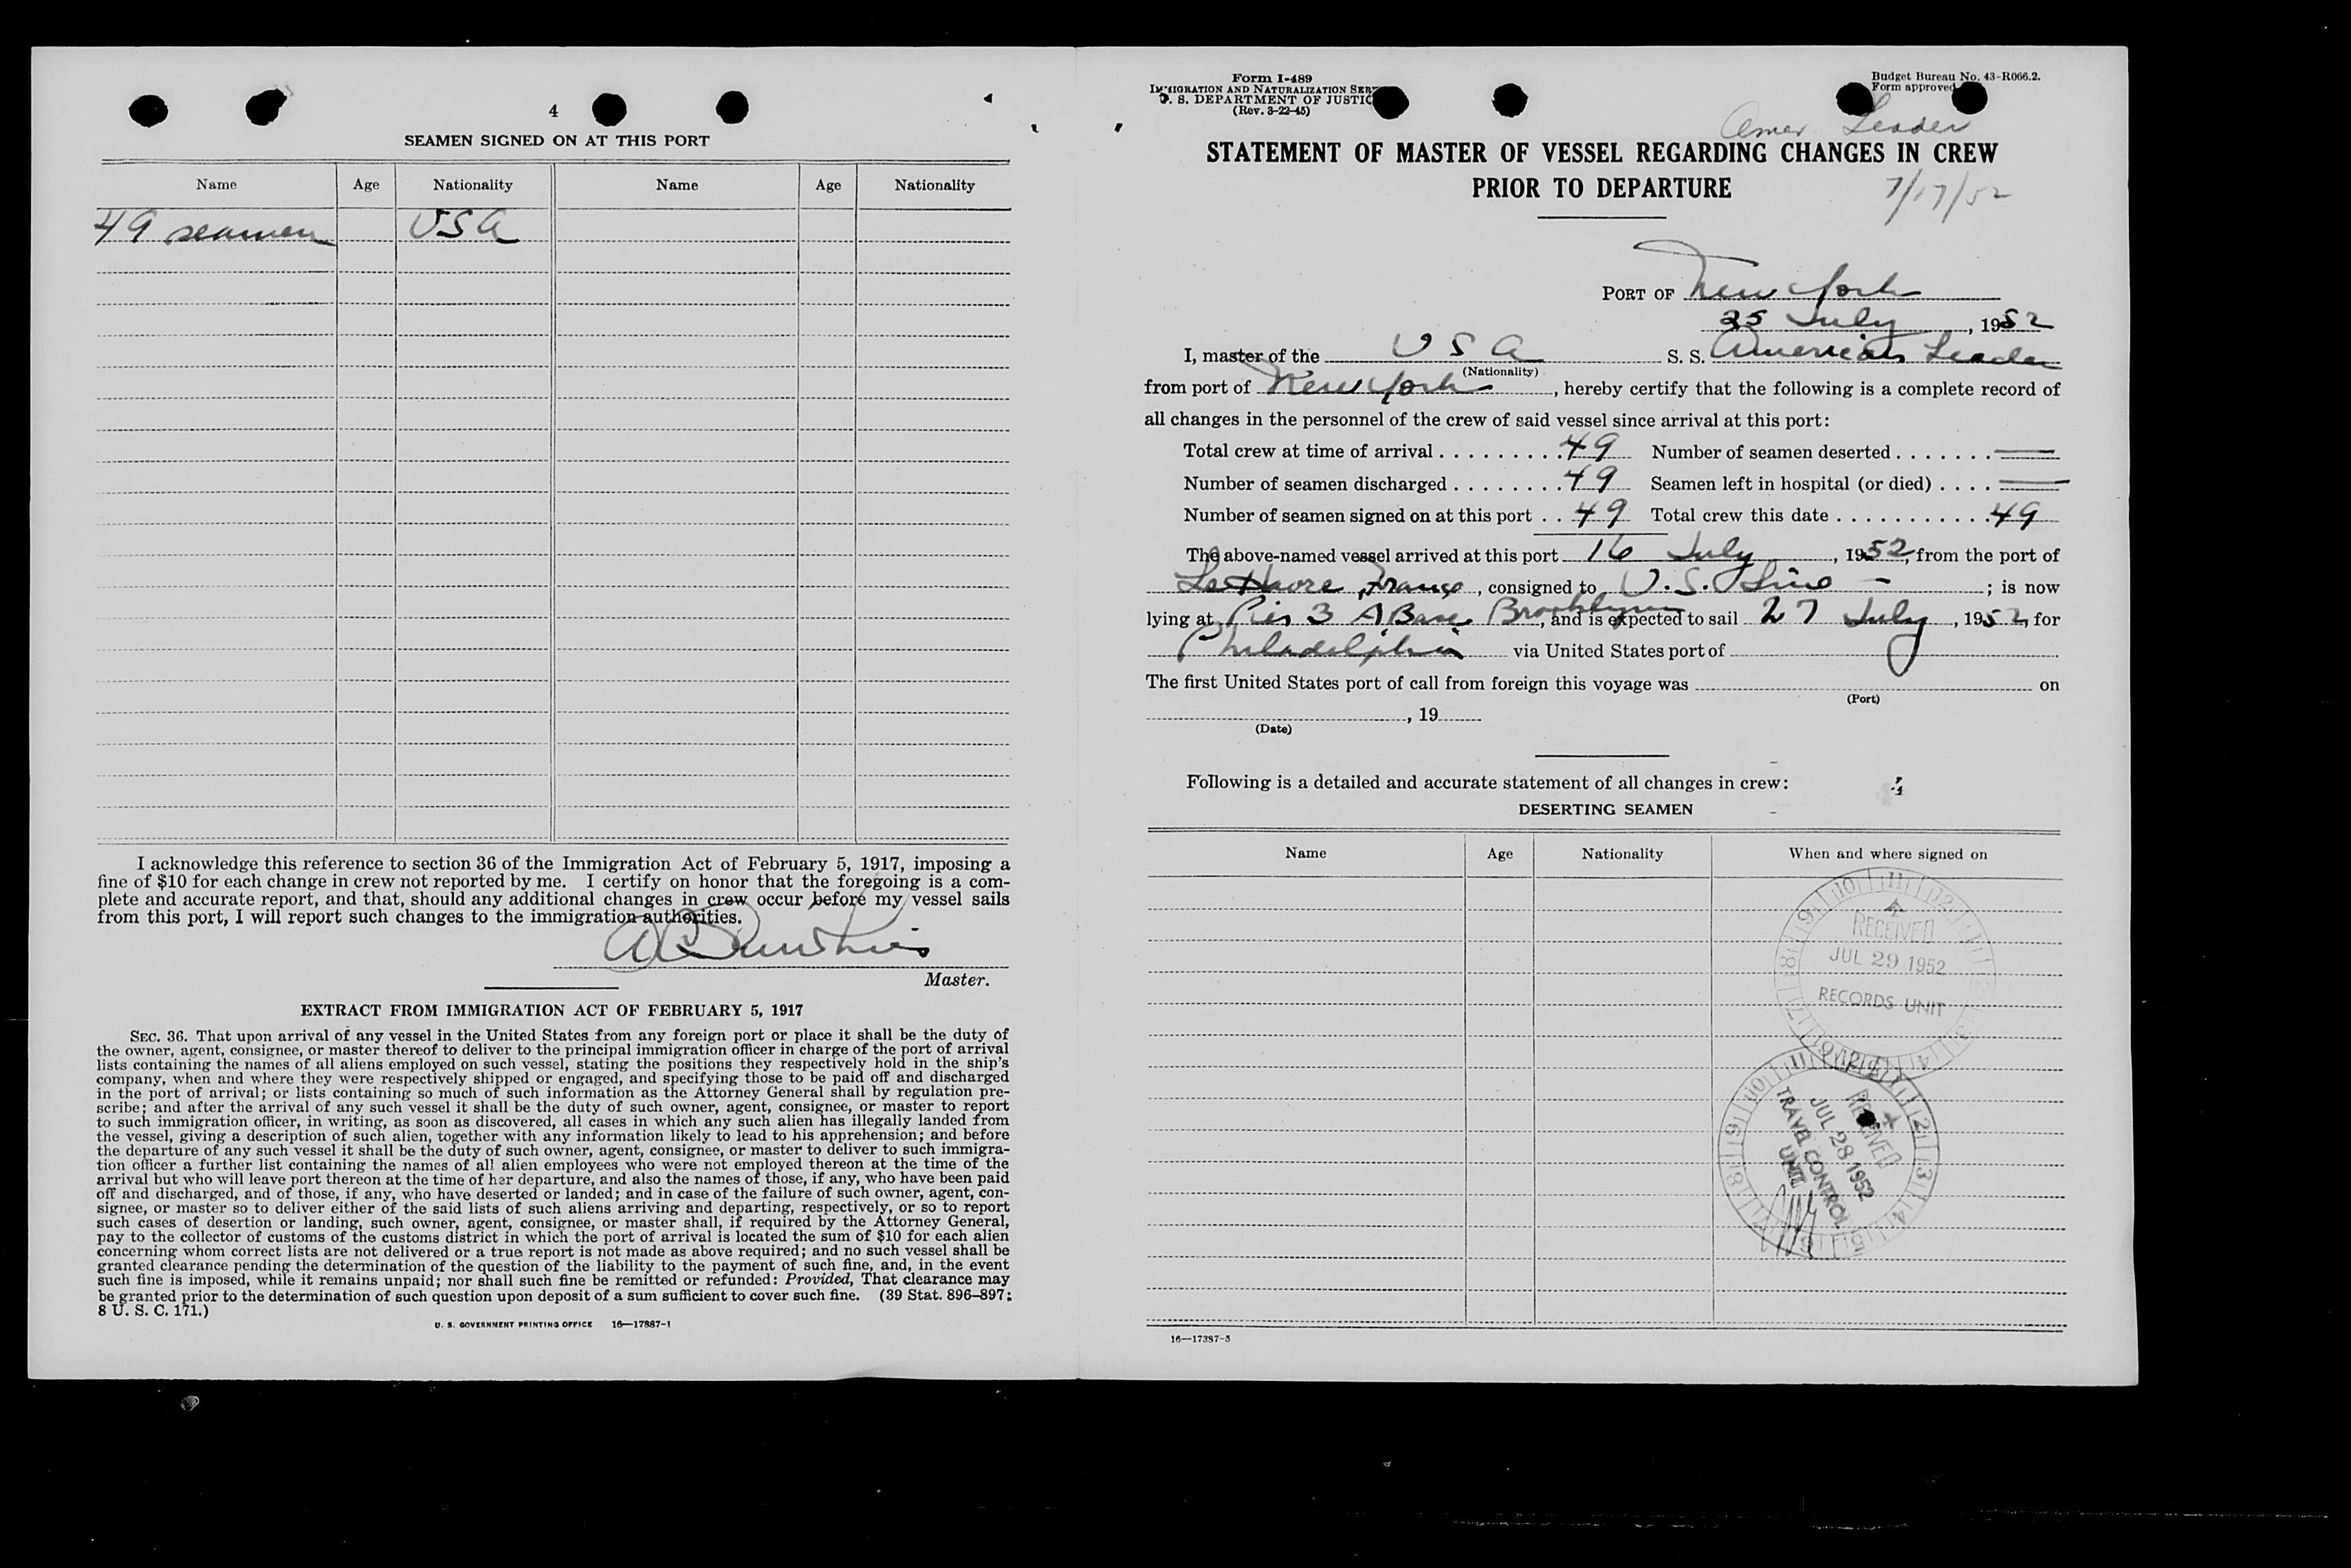 4
SEAMEN SIGNED ON AT THIS PORT
Name Age Nationality Name Age Nationality
49 seamen USA
I acknowledge this reference to section 36 of the Immigration Act of February 5, 1917, imposing a
fine of $10 for each change in crew not reported by me. I certify on honor that the foregoing is a com-
plete and accurate report, and that, should any additional changes in crew occur before my vessel sails
from this port, I will report such changes to the immigration authorities.
Master.
EXTRACT FROM IMMIGRATION ACT OF FEBRUARY 5, 1917
SEC. 36. That upon arrival of any vessel in the United States from any foreign port or place it shall be the duty of
the owner, agent, consignee, or master thereof to deliver to the principal immigration officer in charge of the port of arrival
lists containing the names of all aliens employed on such vessel, stating the positions they respectively hold in the ship's
company, when and where they were respectively shipped or engaged, and specifying those to be paid off and discharged
in the port of arrival; or lists containing so much of such information as the Attorney General shall by regulation pre-
scribe; and after the arrival of any such vessel it shall be the duty of such owner, agent, consignee, or master to report
to such immigration officer, in writing, as soon as discovered, all cases in which any such alien has illegally landed from
the vessel, giving a description of such alien, together with any information likely to lead to his apprehension; and before
the departure of any such vessel it shall be the duty of such owner, agent, consignee, or master to deliver to such immigra-
tion officer a further list containing the names of all alien employees who were not employed thereon at the time of the
arrival but who will leave port thereon at the time of her departure, and also the names of those, if any, who have been paid
off and discharged, and of those, if any, who have deserted or landed; and in case of the failure of such owner, agent, con-
signee, or master so to deliver either of the said lists of such aliens arriving and departing, respectively, or so to report
such cases of desertion or landing, such owner, agent, consignee, or master shall, if required by the Attorney General,
pay to the collector of customs of the customs district in which the port of arrival is located the sum of $10 for each alien
concerning whom correct lists are not delivered or a true report is not made as above required; and no such vessel shall be
granted clearance pending the determination of the question of the liability to the payment of such fine, and, in the event
such fine is imposed, while it remains unpaid; nor shall such fine be remitted or refunded: Provided, That clearance may
be granted prior to the determination of such question upon deposit of a sum sufficient to cover such fine. (39 Stat. 896-897;
8 U. S. C. 171.)
U. S. GOVERNMENT PRINTING OFFICE 16—17387-1
Form I-489
IMMIGRATION AND NATURALIZATION SER
U. S. DEPARTMENT OF JUSTIC
(Rev. 3-22-45)
Budget Bureau No. 43-R066.2.
Form approved
Amer Leader
STATEMENT OF MASTER OF VESSEL REGARDING CHANGES IN CREW
PRIOR TO DEPARTURE
7/17/52
PORT OF New York
25 July, 1952
I, master of the USA S. S. American Leader
(Nationality)
from port of New York, hereby certify that the following is a complete record of
all changes in the personnel of the crew of said vessel since arrival at this port:
Total crew at time of arrival . . . . . . . . . 49 Number of seamen deserted . . . . . . . —
Number of seamen discharged . . . . . . . . 49 Seamen left in hospital (or died) . . . . —
Number of seamen signed on at this port . . 49 Total crew this date . . . . . . . . . . . . 49
The above-named vessel arrived at this port 16 July, 1952, from the port of
Le Havre, France, consigned to U.S. Line —; is now
lying at Pier 3 A Base Brooklyn, and is expected to sail 27 July, 1952, for
Philadelphia via United States port of
The first United States port of call from foreign this voyage was on
(Port)
, 19
(Date)
Following is a detailed and accurate statement of all changes in crew:
DESERTING SEAMEN
Name Age Nationality When and where signed on
RECEIVED
JUL 29 1952
RECORDS UNIT
RECEIVED
JUL 28 1952
TRAVEL CONTROL
UNIT
16—17387-5